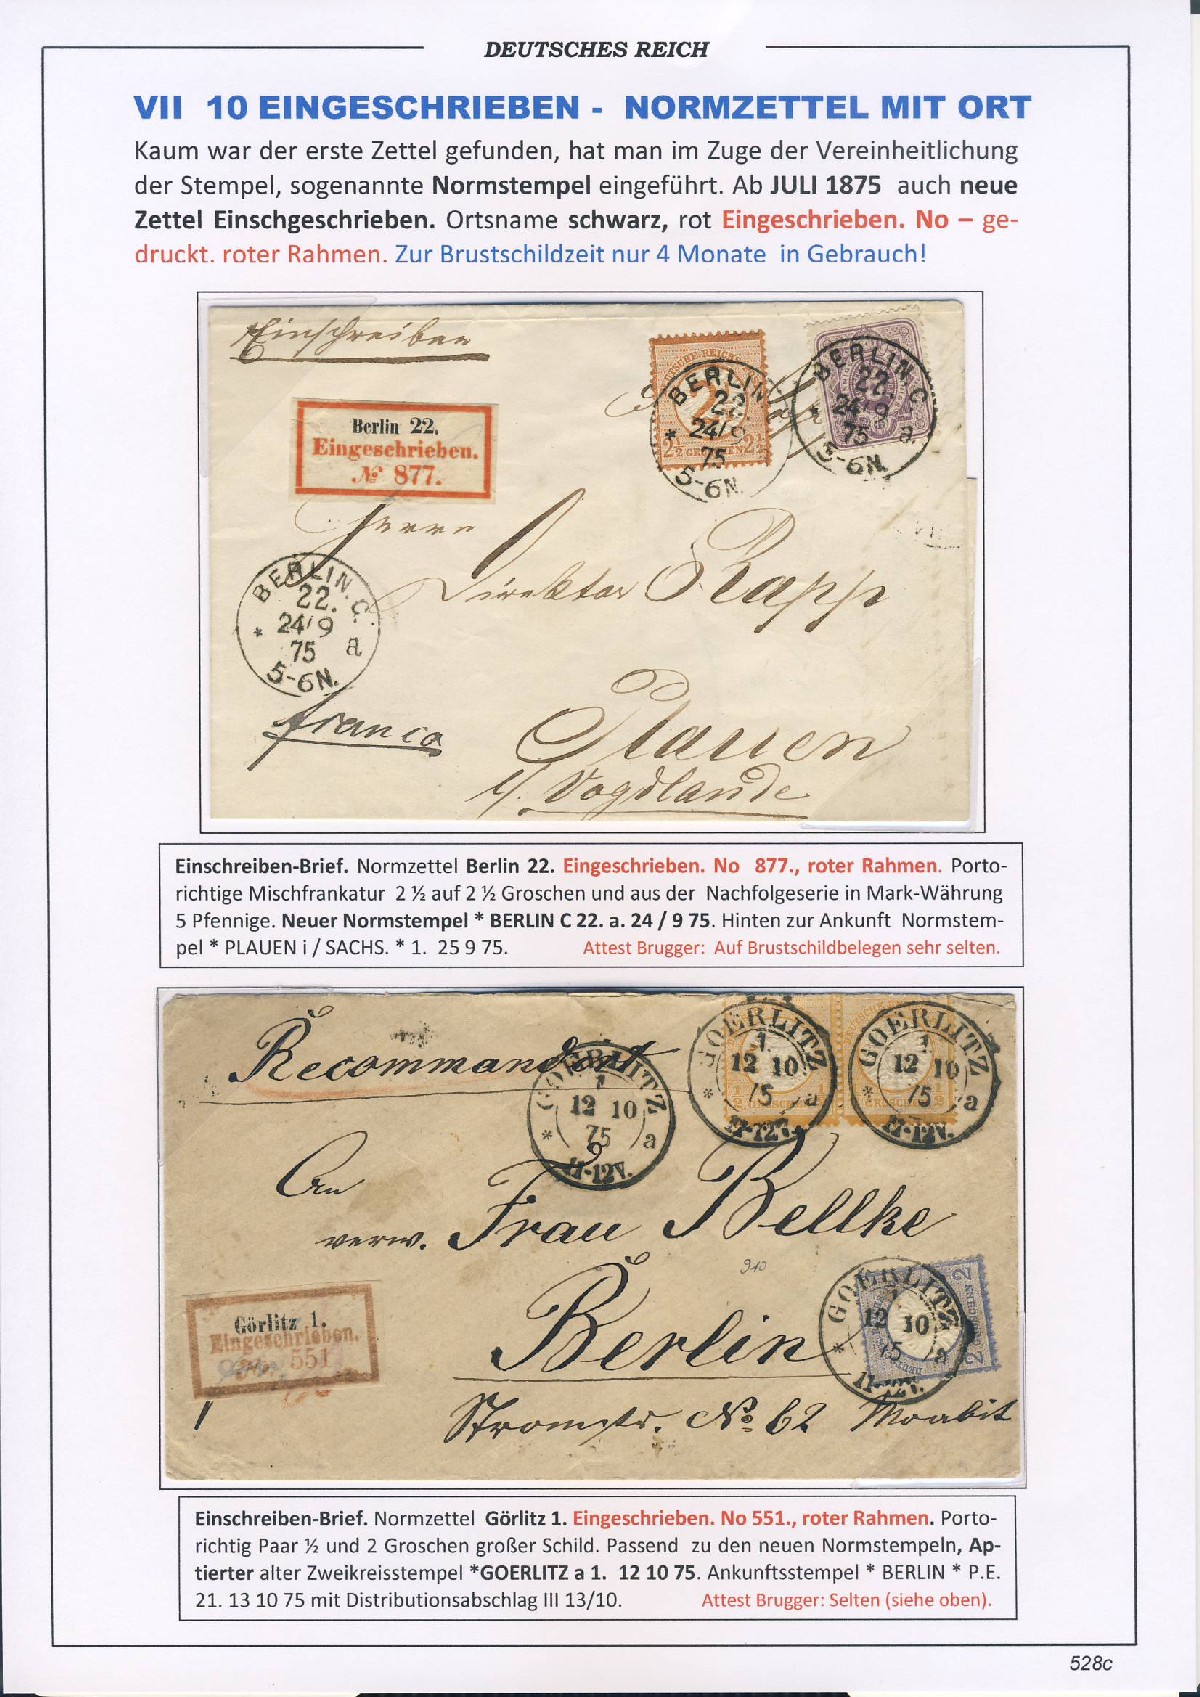 DEUTSCHES REICH
VII 10 EINGESCHRIEBEN - NORMZETTEL MIT ORT
Kaum war der erste Zettel gefunden, hat man im Zuge der Vereinheitlichung
der Stempel, sogenannte Normstempel eingeführt. Ab JULI 1875 auch neue
Zettel Einschgeschrieben. Ortsname schwarz, rot Eingeschrieben. No – ge-
druckt. roter Rahmen. Zur Brustschildzeit nur 4 Monate in Gebrauch!
Einschreiben
BERLIN
22.
24/9
75
5-6N.
BERLIN. C.
22.
24/9
75 a
5-6N.
Berlin 22.
Eingeschrieben.
№ 877.
Herrn
Direktor Rapp
BERLIN. C.
22.
24/9
75 a
5-6N.
franco
Plauen
i/ Vogdlande
Einschreiben-Brief. Normzettel Berlin 22. Eingeschrieben. No 877., roter Rahmen. Porto-
richtige Mischfrankatur 2 ½ auf 2 ½ Groschen und aus der Nachfolgeserie in Mark-Währung
5 Pfennige. Neuer Normstempel * BERLIN C 22. a. 24 / 9 75. Hinten zur Ankunft Normstem-
pel * PLAUEN i / SACHS. * 1. 25 9 75. Attest Brugger: Auf Brustschildbelegen sehr selten.
Recommandirt
GOERLITZ
1
12 10
75 a
11-12V.
GOERLITZ
1.
12 10
75 a
11-12V.
GOERLITZ
1
12 10
75 a
11-12V.
An
verw. Frau Bellke
910
Berlin
GOERLITZ
1
12 10
75 a
11-12V.
Görlitz 1.
Eingeschrieben.
551
Stromstr. No 62 Moabit
Einschreiben-Brief. Normzettel Görlitz 1. Eingeschrieben. No 551., roter Rahmen. Porto-
richtig Paar ½ und 2 Groschen großer Schild. Passend zu den neuen Normstempeln, Ap-
tierter alter Zweikreisstempel *GOERLITZ a 1. 12 10 75. Ankunftsstempel * BERLIN * P.E.
21. 13 10 75 mit Distributionsabschlag III 13/10. Attest Brugger: Selten (siehe oben).
528c